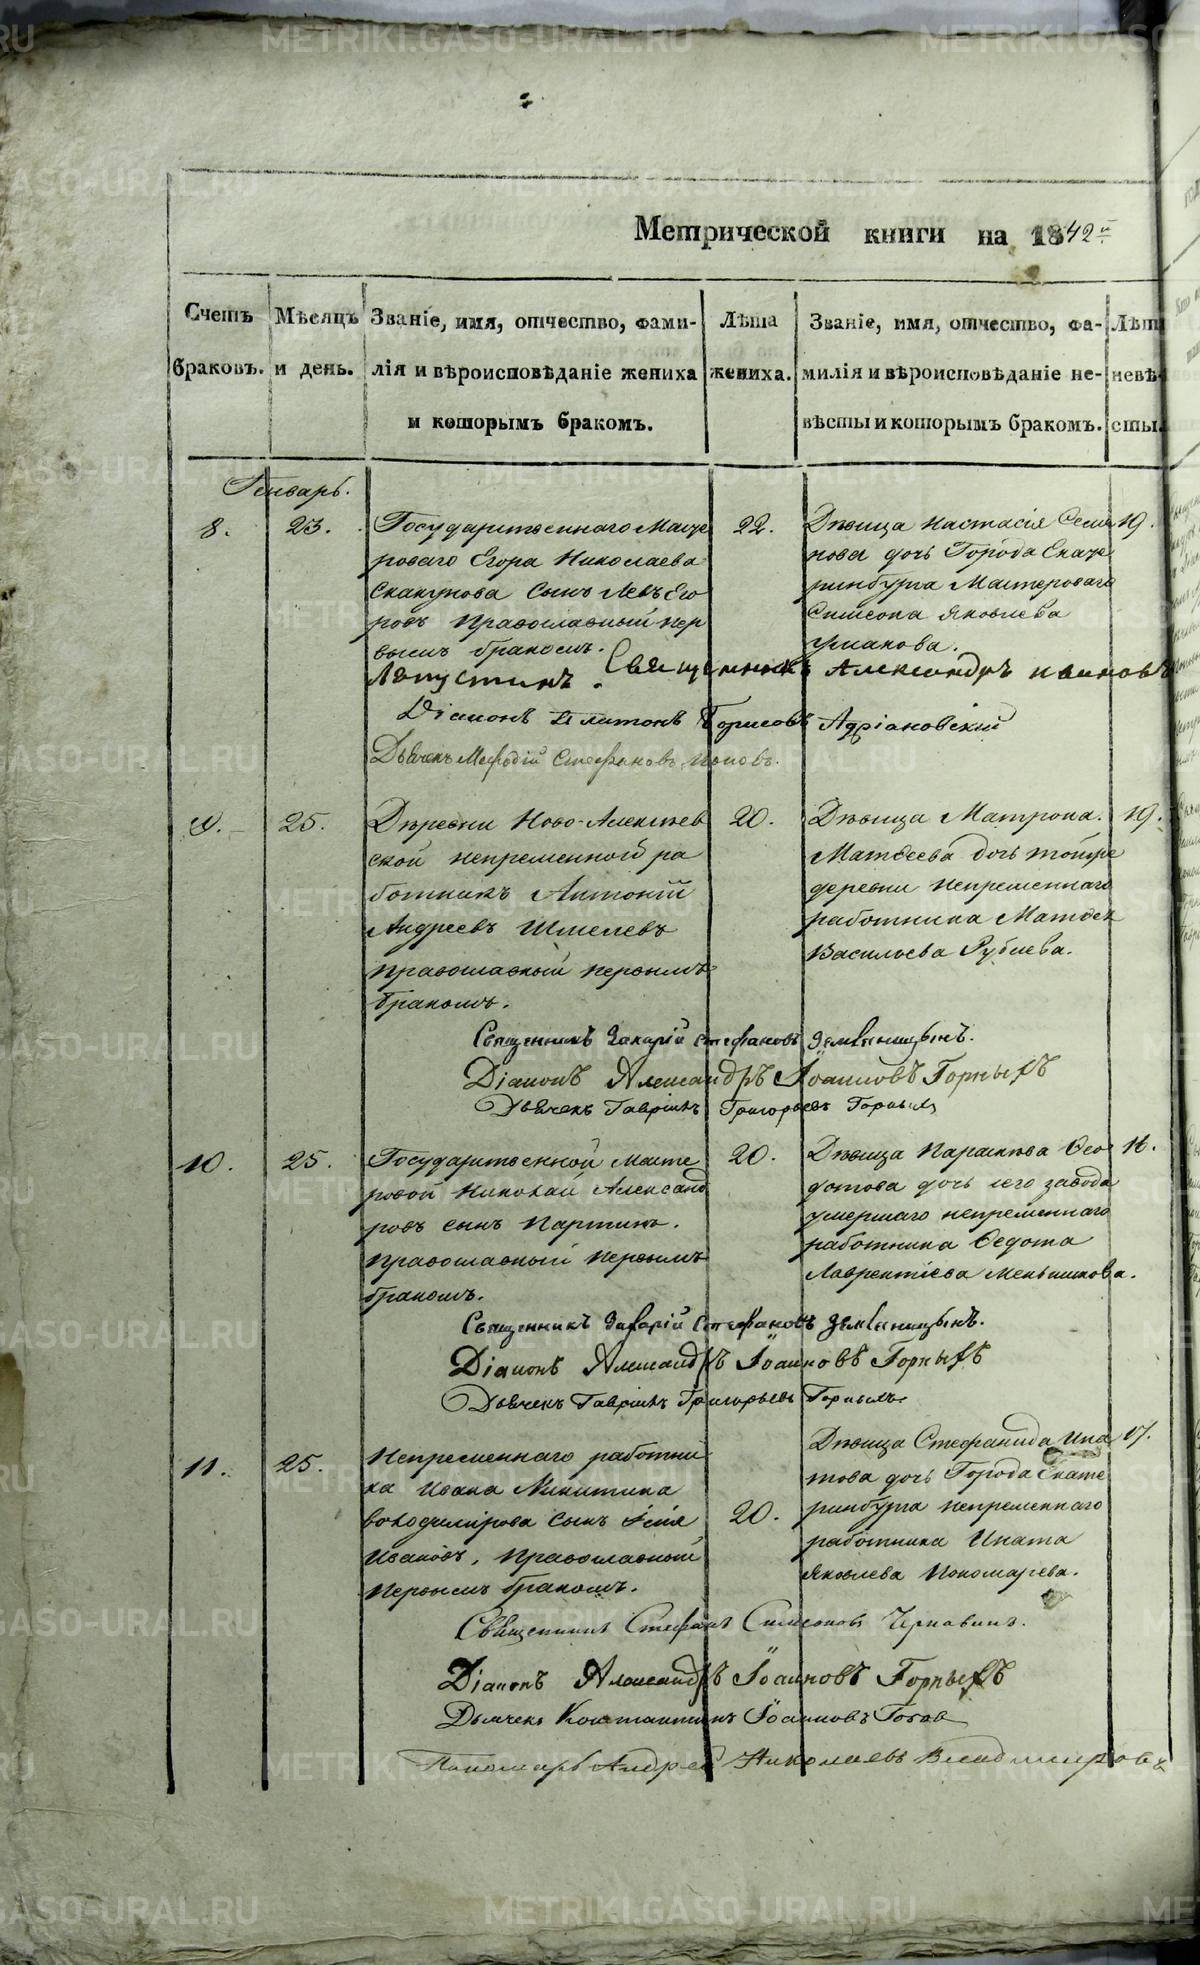 Метрической книги на 1842й
Счетъ браковъ.
Мѣсяцъ и день.
Званіе, имя, отчество, фами-
лія и вѣроисповѣданіе жениха
и которымъ бракомъ.
Лѣта
жениха.
Званіе, имя, отчество, фа-
милія и вѣроисповѣданіе не-
вѣсты и которымъ бракомъ.
Лѣта
невѣ-
сты.
Генварь.
8.
23.
Государственнаго Масте
роваго Егора Николаева
Скакунова сынъ Левъ Его
ровъ Православный пер
вымъ бракомъ.
22.
Дѣвица Настасія Семе
нова дочь Города Екате
ринбурга Мастероваго
Симеона Яковлева
19.
Священникъ Александръ
Діаконъ Платонъ Борисовъ Адріановскій
Дьячекъ Мефодій Стефановъ Поповъ.
9.
25.
Деревни Ново-Алексѣев
ской непременной ра
ботникъ Антоній
Андреевъ Шмелевъ
православный первымъ
бракомъ.
20.
Дѣвица Матрона
Матвеева дочь тойже
деревни непременнаго
работника Матвея
Васильева Рублева.
19.
Священникъ Захарій Стефановъ Земляницынъ.
Діаконъ Александръ Іоанновъ Горныхъ
Дьячекъ Гавріилъ Григорьевъ Горныхъ
10.
25.
Государственной Масте
ровой Николай Александ
ровъ сынъ Партинъ.
православный первымъ
бракомъ.
20.
Дѣвица Параскева Ѳео
дотова дочь сего завода
умершаго непременнаго
работника Ѳедота
Лаврентіева Меньшикова.
16.
Священникъ Захарій Стефановъ Земляницынъ.
Діаконъ Александръ Іоанновъ Горныхъ
Дьячекъ Гавріилъ Григорьевъ Горныхъ
11.
25.
Непременнаго работни
ка Ивана Никитина
Володимірова сынъ
Ивановъ, Православный
первымъ бракомъ.
20.
Дѣвица Стефанида Ипа
това дочь Города Екате
ринбурга непременнаго
работника Ипата
Яковлева Пономарева.
17.
Священникъ Стефанъ Симеоновъ Чернавинъ.
Діаконъ Александръ Іоанновъ Горныхъ
Дьячекъ Константинъ Іоанновъ
Пономарь Андрей Николаевъ Владимировъ
METRIKI.GASO-URAL.RU